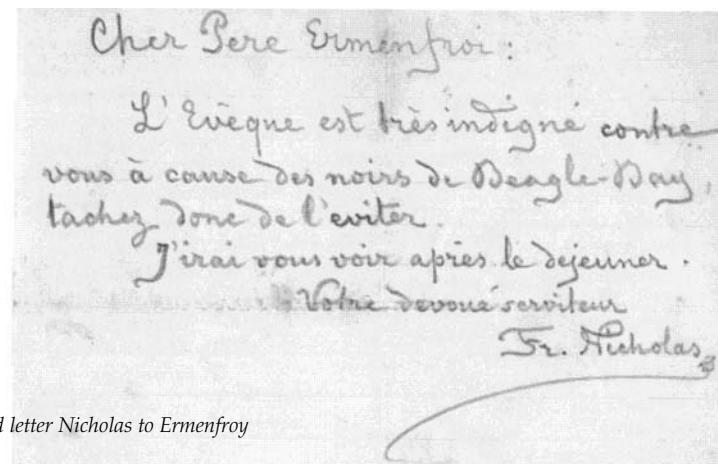 Cher Pere Ermenfroi:
L'Evèque est très indigné contre
vous à cause des noirs de Beagle-Bay,
tachez donc de l'eviter.
J'irai vous voir après le dejeuner.
Votre devoué serviteur
Fr. Nicholas
letter Nicholas to Ermenfroy